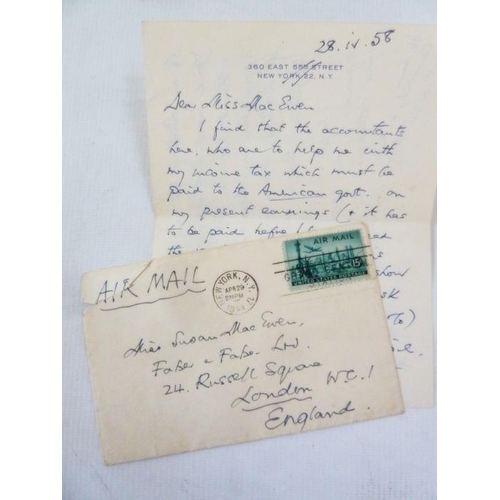 28.iv.58
360 EAST 55th STREET
NEW YORK 22, N.Y.
Dear Miss MacEwen
I find that the accountants
here, who are to help me with
my income tax which must be
paid to the American govt. on
my present earnings (& it has
to be paid before I
the
show
ask
to)
AIR MAIL
NEW YORK, N.Y.
APR 29
PM
1958
AIR MAIL
15¢
UNITED STATES POSTAGE
Miss Susan MacEwen,
Faber & Faber Ltd.
24. Russell Square
London W.C.1
England.